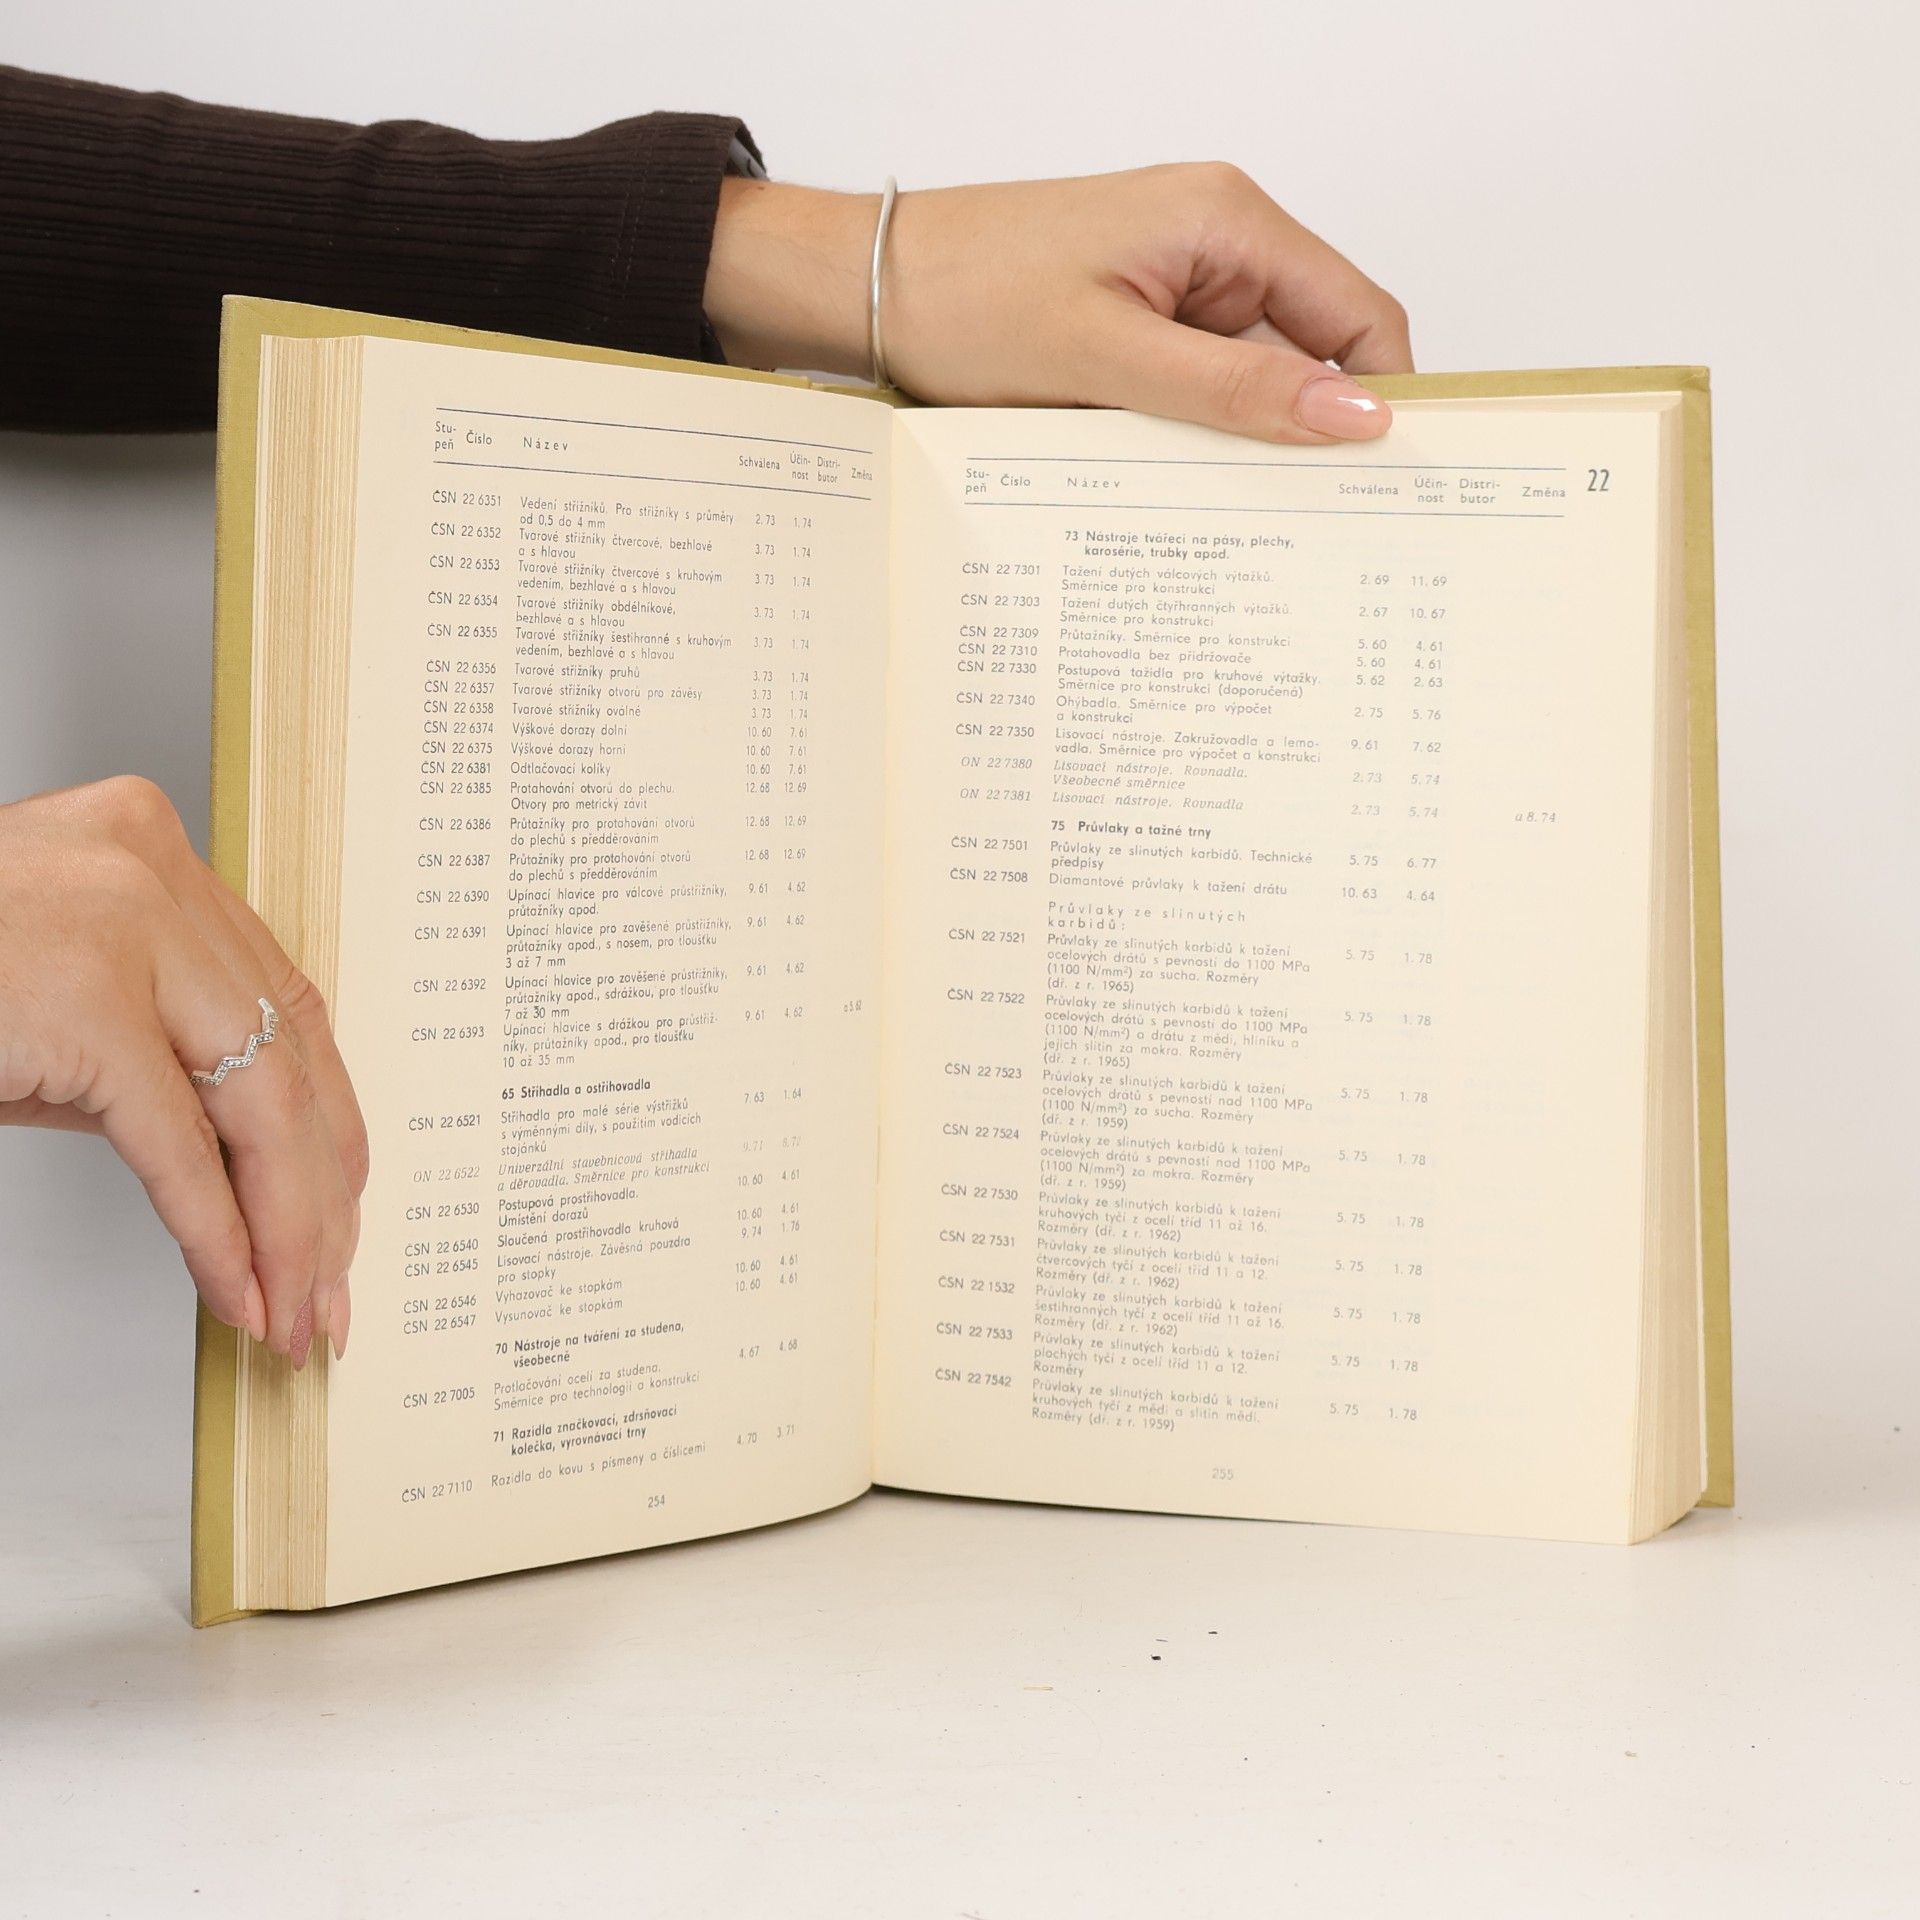 Stu-
peň Číslo Název Schválena Účin-
nost Distri-
butor Změna
ČSN 22 6351 Vedení střižníků. Pro střižníky s průměry
od 0,5 do 4 mm 2. 73 1. 74
ČSN 22 6352 Tvarové střižníky čtvercové, bezhlavé
a s hlavou 3. 73 1. 74
ČSN 22 6353 Tvarové střižníky čtvercové s kruhovým
vedením, bezhlavé a s hlavou 3. 73 1. 74
ČSN 22 6354 Tvarové střižníky obdélníkové,
bezhlavé a s hlavou 3. 73 1. 74
ČSN 22 6355 Tvarové střižníky šestihranné s kruhovým
vedením, bezhlavé a s hlavou 3. 73 1. 74
ČSN 22 6356 Tvarové střižníky pruhů 3. 73 1. 74
ČSN 22 6357 Tvarové střižníky otvorů pro závěsy 3. 73 1. 74
ČSN 22 6358 Tvarové střižníky oválné 3 73 1. 74
ČSN 22 6374 Výškové dorazy dolní 10. 60 7. 61
ČSN 22 6375 Výškové dorazy horní 10. 60 7. 61
ČSN 22 6381 Odtlačovací kolíky 10. 60 7. 61
ČSN 22 6385 Protahování otvorů do plechu.
Otvory pro metrický závit 12. 68 12. 69
ČSN 22 6386 Průtažníky pro protahování otvorů
do plechů s předděrováním 12. 68 12. 69
ČSN 22 6387 Průtažníky pro protahování otvorů
do plechů s předděrováním 12. 68 12. 69
ČSN 22 6390 Upínací hlavice pro válcové průstřižníky,
průtažníky apod. 9. 61 4. 62
ČSN 22 6391 Upínací hlavice pro zavěšené průstřižníky,
průtažníky apod., s nosem, pro tloušťku
3 až 7 mm 9. 61 4. 62
ČSN 22 6392 Upínací hlavice pro zavěšené průstřižníky,
průtažníky apod., sdrážkou, pro tloušťku
7 až 30 mm 9. 61 4. 62
ČSN 22 6393 Upínací hlavice s drážkou pro průstřiž-
níky, průtažníky apod., pro tloušťku
10 až 35 mm 9. 61 4. 62 a 5. 62
65 Střihadla a ostřihovadla
ČSN 22 6521 Střihadla pro malé série výstřižků
s výměnnými díly, s použitím vodících
stojánků 7. 63 1. 64
ON 22 6522 Univerzální stavebnicová střihadla
a děrovadla. Směrnice pro konstrukci 9. 71 8. 72
ČSN 22 6530 Postupová prostřihovadla.
Umístění dorazů 10. 60 4. 61
ČSN 22 6540 Sloučená prostřihovadla kruhová 10. 60 4. 61
ČSN 22 6545 Lisovací nástroje. Závěsná pouzdra
pro stopky 9. 74 1. 76
ČSN 22 6546 Vyhazovač ke stopkám 10. 60 4. 61
ČSN 22 6547 Vysunovač ke stopkám 10. 60 4. 61
70 Nástroje na tváření za studena,
všeobecně
ČSN 22 7005 Protlačování ocelí za studena.
Směrnice pro technologii a konstrukci 4. 67 4. 68
71 Razidla značkovací, zdrsňovací
kolečka, vyrovnávací trny
ČSN 22 7110 Razidla do kovu s písmeny a číslicemi 4. 70 3. 71
254
Stu-
peň Číslo Název Schválena Účin-
nost Distri-
butor Změna 22
73 Nástroje tvářecí na pásy, plechy,
karosérie, trubky apod.
ČSN 22 7301 Tažení dutých válcových výtažků.
Směrnice pro konstrukci 2. 69 11. 69
ČSN 22 7303 Tažení dutých čtyřhranných výtažků.
Směrnice pro konstrukci 2. 67 10. 67
ČSN 22 7309 Průtažníky. Směrnice pro konstrukci 5. 60 4. 61
ČSN 22 7310 Protahovadla bez přidržovače 5. 60 4. 61
ČSN 22 7330 Postupová tažidla pro kruhové výtažky.
Směrnice pro konstrukci (doporučená) 5. 62 2. 63
ČSN 22 7340 Ohýbadla. Směrnice pro výpočet
a konstrukci 2. 75 5. 76
ČSN 22 7350 Lisovací nástroje. Zakružovadla a lemo-
vadla. Směrnice pro výpočet a konstrukci 9. 61 7. 62
ON 22 7380 Lisovací nástroje. Rovnadla.
Všeobecné směrnice 2. 73 5. 74
ON 22 7381 Lisovací nástroje. Rovnadla 2. 73 5. 74 a 8. 74
75 Průvlaky a tažné trny
ČSN 22 7501 Průvlaky ze slinutých karbidů. Technické
předpisy 5. 75 6. 77
ČSN 22 7508 Diamantové průvlaky k tažení drátu 10. 63 4. 64
Průvlaky ze slinutých
karbidů:
ČSN 22 7521 Průvlaky ze slinutých karbidů k tažení
ocelových drátů s pevností do 1100 MPa
(1100 N/mm²) za sucha. Rozměry
(dř. z r. 1965) 5. 75 1. 78
ČSN 22 7522 Průvlaky ze slinutých karbidů k tažení
ocelových drátů s pevností do 1100 MPa
(1100 N/mm²) a drátu z mědi, hliníku a
jejich slitin za mokra. Rozměry
(dř. z r. 1965) 5. 75 1. 78
ČSN 22 7523 Průvlaky ze slinutých karbidů k tažení
ocelových drátů s pevností nad 1100 MPa
(1100 N/mm²) za sucha. Rozměry
(dř. z r. 1959) 5. 75 1. 78
ČSN 22 7524 Průvlaky ze slinutých karbidů k tažení
ocelových drátů s pevností nad 1100 MPa
(1100 N/mm²) za mokra. Rozměry
(dř. z r. 1959) 5. 75 1. 78
ČSN 22 7530 Průvlaky ze slinutých karbidů k tažení
kruhových tyčí z ocelí tříd 11 až 16.
Rozměry (dř. z r. 1962) 5. 75 1. 78
ČSN 22 7531 Průvlaky ze slinutých karbidů k tažení
čtvercových tyčí z ocelí tříd 11 a 12.
Rozměry (dř. z r. 1962) 5. 75 1. 78
ČSN 22 1532 Průvlaky ze slinutých karbidů k tažení
šestihranných tyčí z ocelí tříd 11 až 16.
Rozměry (dř. z r. 1962) 5. 75 1. 78
ČSN 22 7533 Průvlaky ze slinutých karbidů k tažení
plochých tyčí z ocelí tříd 11 a 12.
Rozměry 5. 75 1. 78
ČSN 22 7542 Průvlaky ze slinutých karbidů k tažení
kruhových tyčí z mědi a slitin mědi.
Rozměry (dř. z r. 1959) 5. 75 1. 78
255